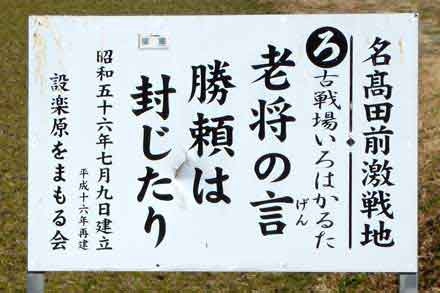 名髙田前激戦地
ろ
古戦場いろはかるた
老将の言
げん
勝頼は
封じたり
昭和五十六年七月九日建立
平成十六年再建
設楽原をまもる会